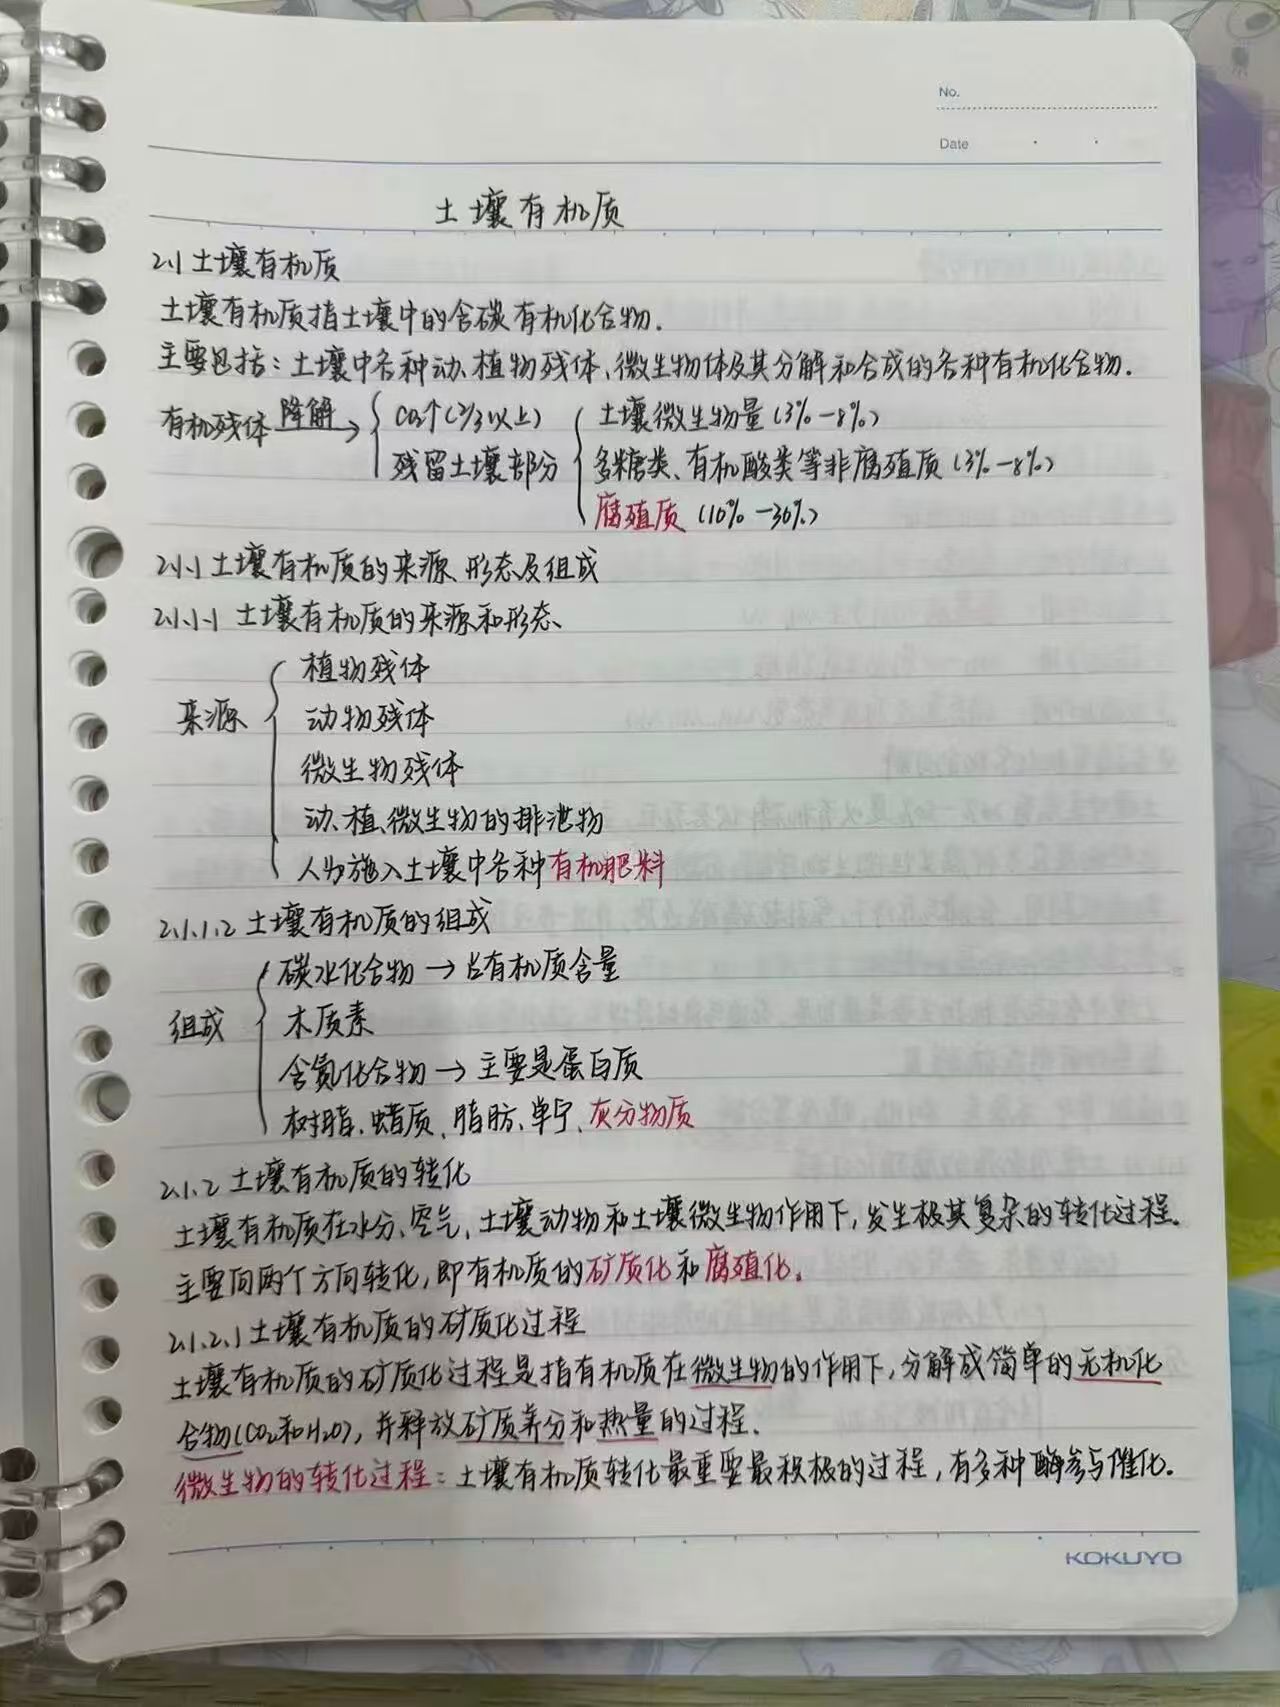 No.
Date
土壤有机质
2.1 土壤有机质
土壤有机质指土壤中的含碳有机化合物.
主要包括:土壤中各种动、植物残体、微生物体及其分解和合成的各种有机化合物.
有机残体 降解→ { CO₂↑(2/3以上) { 土壤微生物量(3%-8%)
残留土壤部分 多糖类、有机酸类等非腐殖质(3%-8%)
腐殖质(10%-30%)
2.1.1 土壤有机质的来源、形态及组成
2.1.1.1 土壤有机质的来源和形态
植物残体
来源 { 动物残体
微生物残体
动、植、微生物的排泄物
人为施入土壤中各种有机肥料
2.1.1.2 土壤有机质的组成
碳水化合物→占有机质含量
组成 { 木质素
含氮化合物→主要是蛋白质
树脂、蜡质、脂肪、单宁、灰分物质
2.1.2 土壤有机质的转化
土壤有机质在水分、空气、土壤动物和土壤微生物作用下,发生极其复杂的转化过程.
主要向两个方向转化,即有机质的矿质化和腐殖化。
2.1.2.1 土壤有机质的矿质化过程
土壤有机质的矿质化过程是指有机质在微生物的作用下,分解成简单的无机化
合物(CO₂和H₂O),并释放矿质养分和热量的过程.
微生物的转化过程:土壤有机质转化最重要最积极的过程,有多种酶参与催化.
KOKUYO